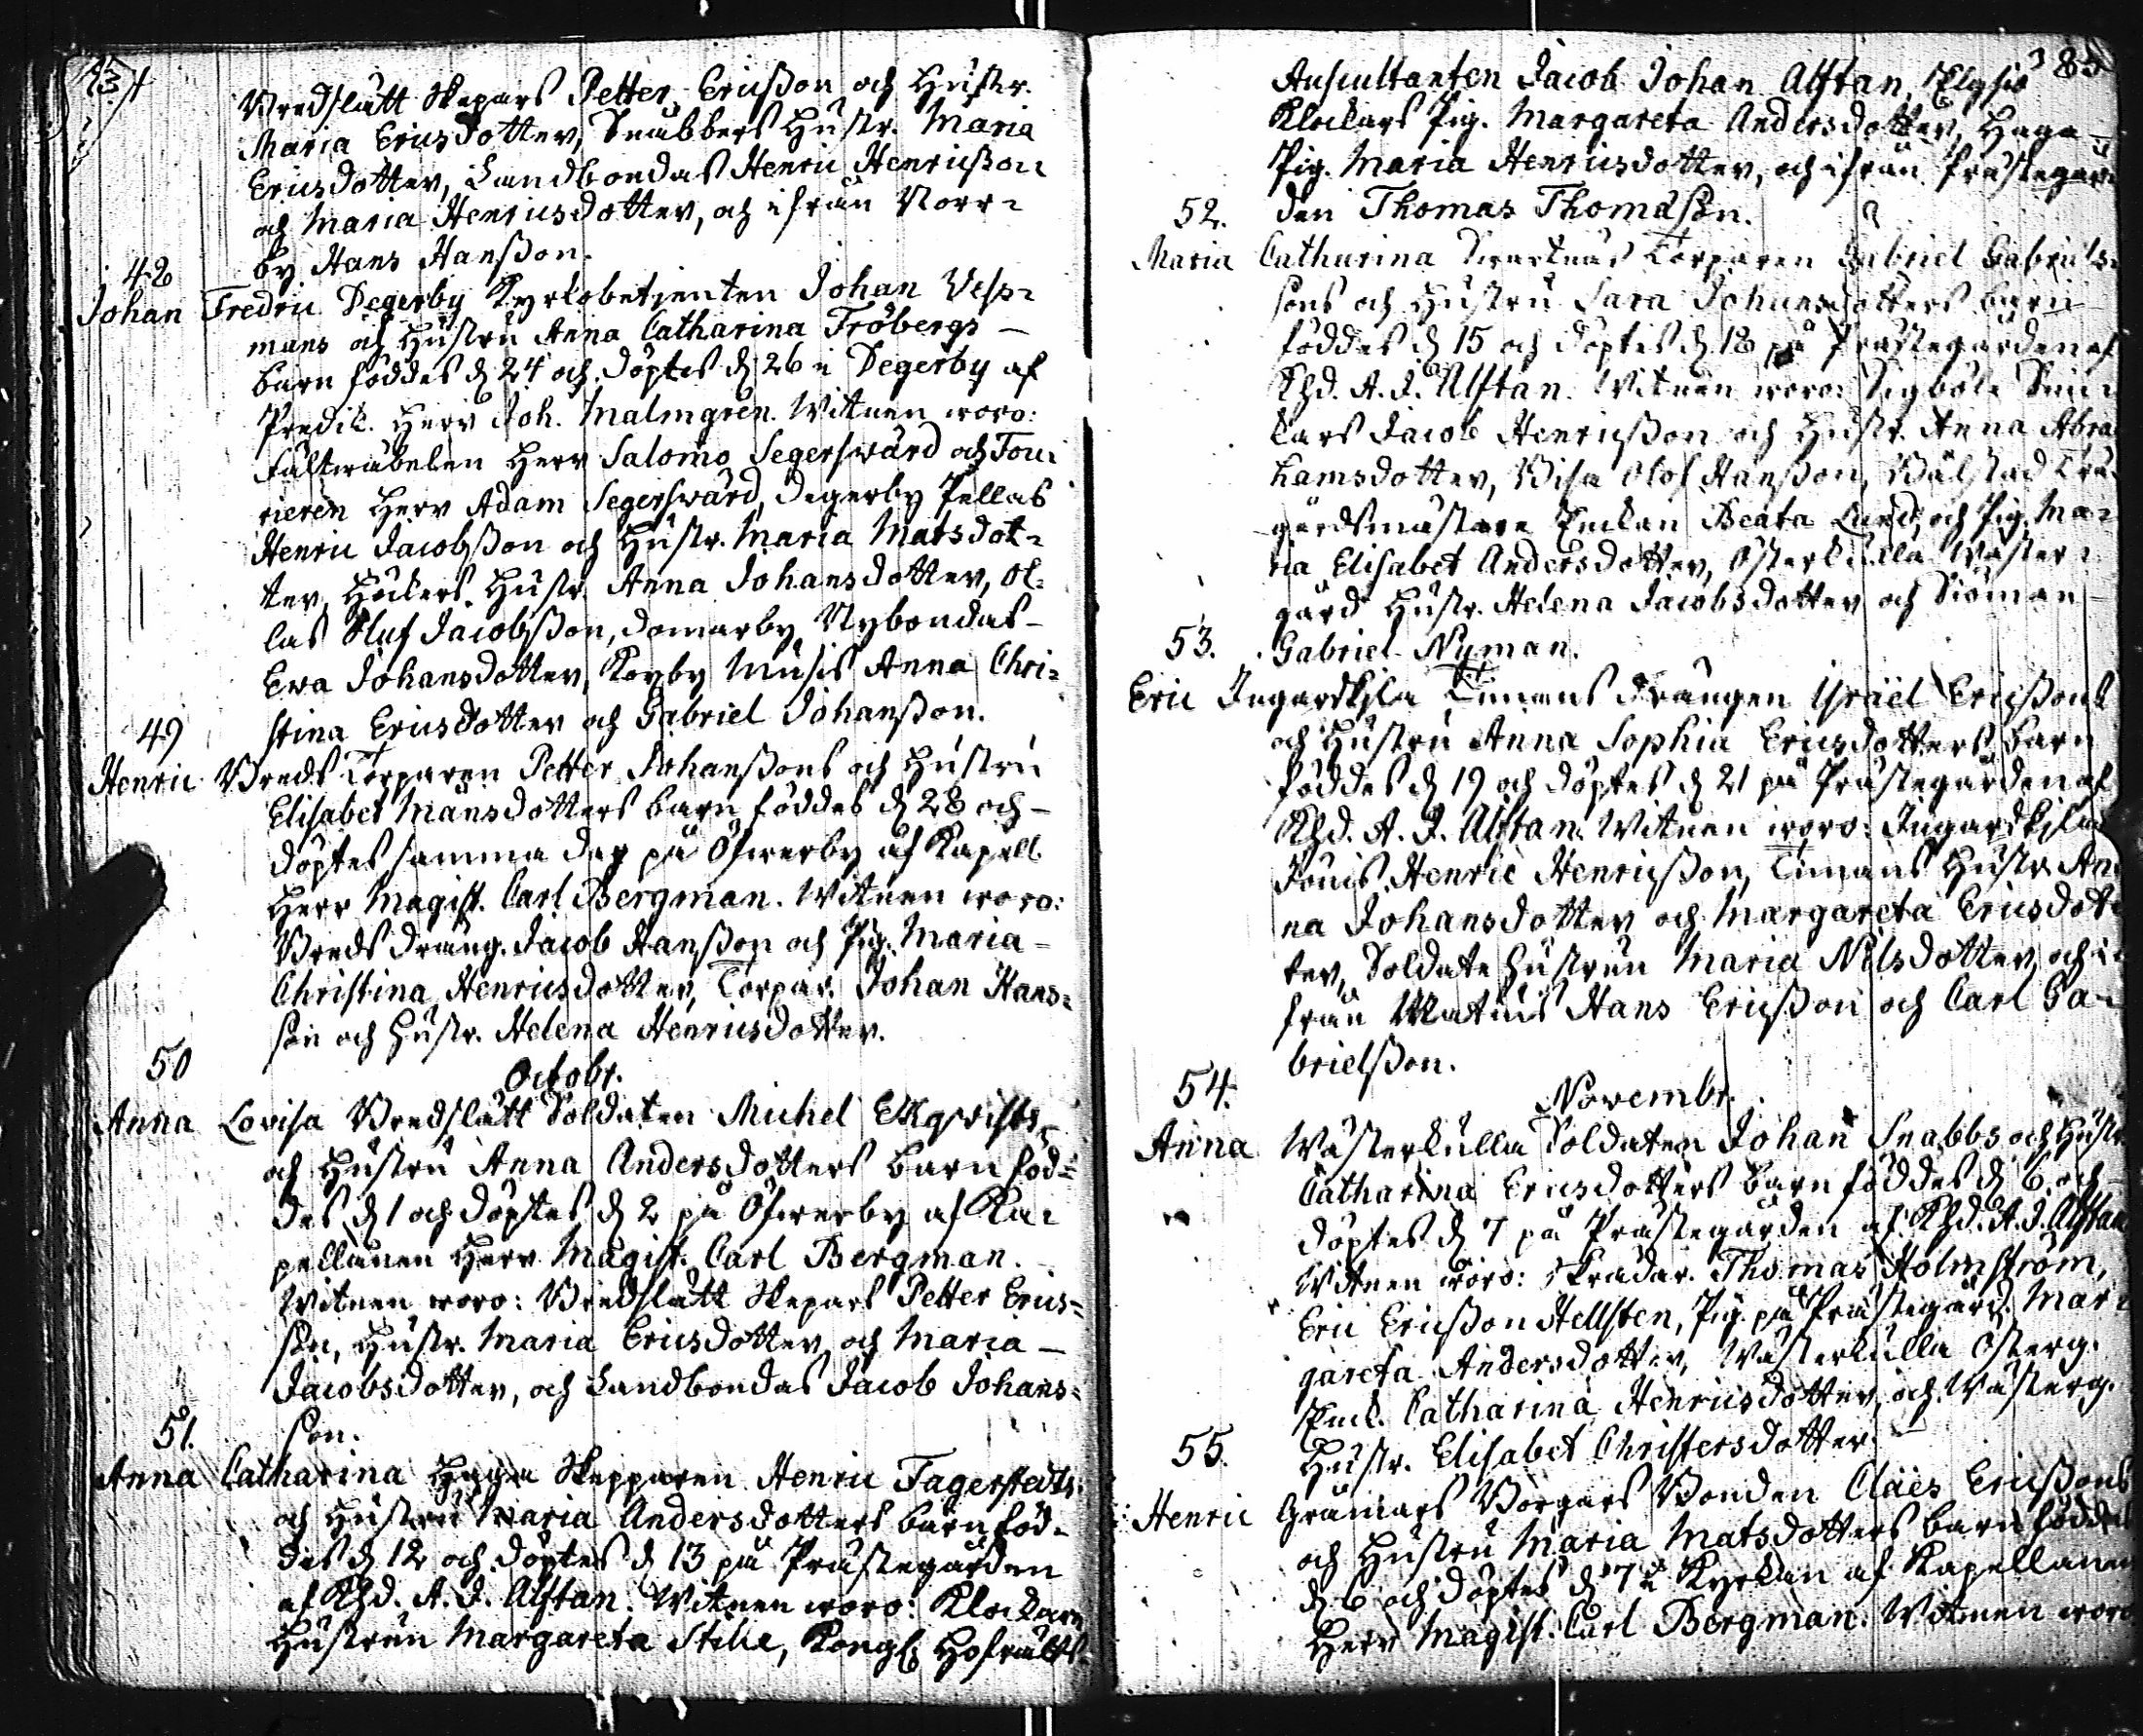 Bredslätt Skepars Petter Ericßon och Hustr.
Maria Ericsdotter, Snabbers Hustr. Maria
Ericsdotter, Landbondas Henric Henricßon
och Maria Henricsdotter, och ifrån Norr-
by Hans Hanßon.
48
Johan Fredric Degerby Kyrkobetjenten Johan Vesp-
mans och Hustru Anna Catharina Fröbergs
barn föddes d 24 och döptes d 26 i Degerby af
Predik. Herr Joh. Malmgren. Witnen woro:
Fältwäbelen Herr Salomo Segerswärd och Fou-
rieren Herr Adam Segerswärd, Degerby Pellas
Henric Jacobsson och Hustr. Maria Matsdot-
ter, Hustr. Anna Johansdotter, Ol-
las Oluf Jacobsson, Domarby Nybondas
Ewa Johansdotter, Anna Chri-
stina Ericsdotter och Gabriel Johanßon.
49
Henric Breds Torparen Petter Johanßons och Hustru
Elisabet Månsdotters barn föddes d 28 och
döptes samma dag på Öfwerby af Kapell.
Herr Magist. Carl Bergman. Witnen woro:
Breds dräng. Jacob Hanßon och Pig. Maria
Christina Henricsdotter, Torpar. Johan Hans-
son och Hustr. Helena Henricsdotter.
50
Octobr.
Anna Lovisa Bredslätt Soldaten Michel Ekqvists
och Hustru Anna Andersdotters barn föd-
des d 1 och döptes d 2 på Öfwerby af Ka-
pellanen Herr Magist. Carl Bergman.
Witnen woro: Bredslätt Skepars Petter Erics-
son, Hustr. Maria Ericsdotter och Maria
Jacobsdotter, och Landbondas Jacob Johans-
son.
51.
Anna Catharina Haga Skepparen Henric Fagerstedts
och Hustru Maria Andersdotters barn föd-
des d 12 och döptes d 13 på Prästegården
af Khd. A. J. Alftan. Witnen woro: Klockare
Hustrun Margareta Kongl. Hofrätts-
85
Auscultanten Jacob Johan Alftan,
Klockars Pig. Margareta Andersdotter, Haga
Pig. Maria Henricsdotter, och ifrån Prästegår-
den Thomas Thomasson.
52.
Maria Catharina Torparen Gabriel Gabriels-
sons och Hustru Sara Johansdotters barn
föddes d 15 och döptes d 18 på Prästegården af
Khd. A. J. Alftan. Witnen woro: Sigböle
Lars Jacob Henricßon och Hustr. Anna Abra-
hamsdotter, Olof Hanßon, Bålstad Trä-
gårdsmästare Enkan Beata Lund, och Pig. Ma-
ria Elisabet Andersdotter, Österkulla Wäster-
gård Hustr. Helena Jacobsdotter och Sjöman
53.
Gabriel Nyman.
Eric Ingarskila Timans drängen Israël Ericßons
och Hustru Anna Sophia Ericsdotters barn
föddes d 19 och döptes d 21 på Prästegården af
Khd. A. J. Alftan. Witnen woro: Ingarskila
Henric Henricßon, Timans Hustr. An-
na Johansdotter och Margareta Ericsdot-
ter, Soldate hustrun Maria Nilsdotter, och i-
från Hans Ericßon och Carl Ga-
brielßon.
54.
Novembr.
Anna Wästerkulla Soldaten Johan Snabbs och Hustr.
Catharina Ericsdotters barn föddes d 6 och
döptes d 7 på Prästegården af Khd. A. J. Alftan
Witnen woro: Skräddr. Thomas Holmström,
Eric Ericßon Hellsten, Pig. på Prästegård. Mar-
gareta Andersdotter, Wästerkulla Österg.
Enk. Catharina Henricsdotter, och Wästerg.
55.
Hustr. Elisabet Christersdotter.
Henric Gränars Borgars Bonden Claës Ericßons
och Hustru Maria Matsdotters barn föddes
d 6 och döptes d 7 i Kyrkan af Kapellanen
Herr Magist. Carl Bergman. Witnen woro